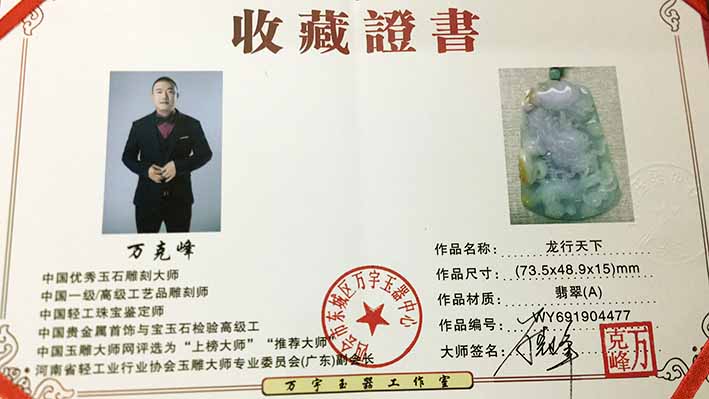 收藏證書
万克峰
中国优秀玉石雕刻大师
中国一级/高级工艺品雕刻师
中国轻工珠宝鉴定师
中国贵金属首饰与宝玉石检验高级工
中国玉雕大师网评选为“上榜大师”“推荐大师”
河南省轻工业行业协会玉雕大师专业委员会(广东)副会长
会市东城区万宇玉器中心
作品名称: 龙行天下
作品尺寸: (73.5x48.9x15)mm
作品材质: 翡翠(A)
作品编号: WY691904477
大师签名:
万克峰
万宇玉器工作室